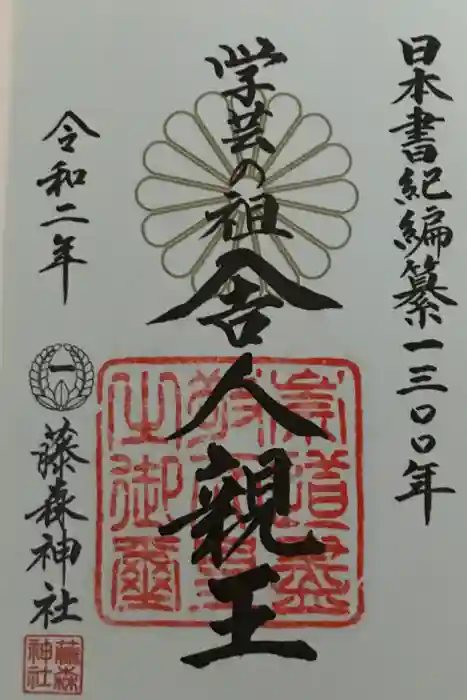 日本書紀編纂一三〇〇年
学芸の祖
舎人親王
崇道盡
敬皇帝
之御璽
令和二年
一
藤森神社
藤森
神社